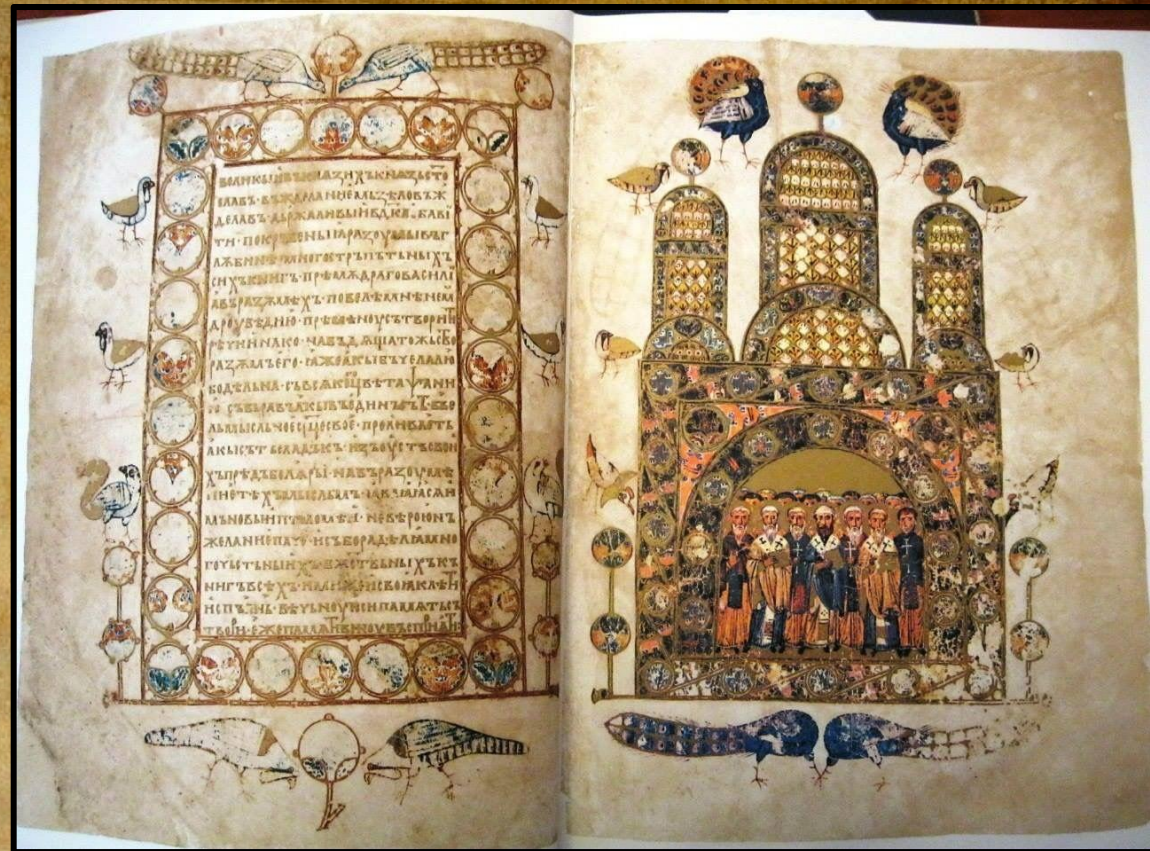 ВЕЛИКЫИ ВЪ КНАЗИХЪ КНАЗЬ СТО
СЛАВЪ ВЪЖДЕЛАНИЕМЬ ЗѢЛО ВЪЖ
ДЕЛАВЪ ДЬРЖАЛИВЫИ ВЛДКА ОБАВИ
ТИ ПОКРЪВЕНЫІА РАЗОУМЫ ВЪ ГЛ
ѪБИНѢ МНОГОСТРЪПЪТЬНЫХЪ
СИХЪ КНИГЪ ПРѢМѪДРАГО ВАСИЛІ
ПОВЕЛѢ МЬНѢ НЕМѪ
ДРОУ ВѢДИЮ ПРѢМѢНОУ СЪТВОРИТИ
РѢЧИ ИНАКО НАБЪДАЩА ТОЖЬСТВО
РАЗѪМЪ ЕГО ІАЖЕ АКЫ БЪЧЕЛА ЛЮ
БОДѢЛЬНА СЪ ВСАКОГО ЦВѢТА ПСАНИ
Ю СЪБЬРАВЪ АКЫ ВЪ ОДИНЪ СЪТЪ ВЪ ВЕ
ЛЬМЫСЛЬНОЕ СРДЦЕ СВОЕ ПРОЛИВАЕТЬ
АКЫ СЪТЪ СЛАДЪКЪ ИЗ ОУСТЪ СВОИ
ХЪ ПРѢДЪ БОЛАРЫ НА ВЪРАЗОУМѢ
НИЕ ТѢХЪ МЫСЛЬМЪ ІАВЛАІАСА И
МЪ НОВЫИ ПТОЛОМѢИ НЕ ВѢРОЮ НЪ
ЖЕЛАНИЕМЬ ПАЧЕ И СЪБОРА ДѢЛЬМА МНО
ГОЧЬСТЬНЫХЪ БЖСТВЬНЫХЪ К
НИГЪ ВСѢХЪ ИМИЖЕ И СВОІА КЛѢТИ
ИСПЪЛНЬ ВѢЧЬНОУЮ СИ ПАМАТЬ
ТВОРИ